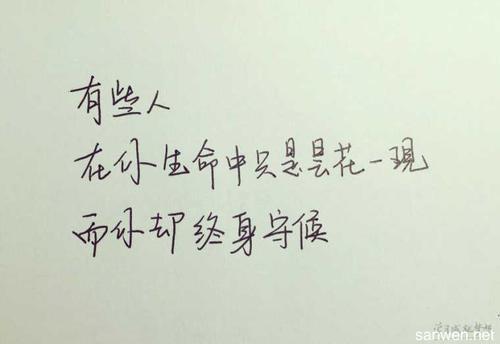 有些人
在你生命中只是昙花一现
而你却终身守候
sanwen.net